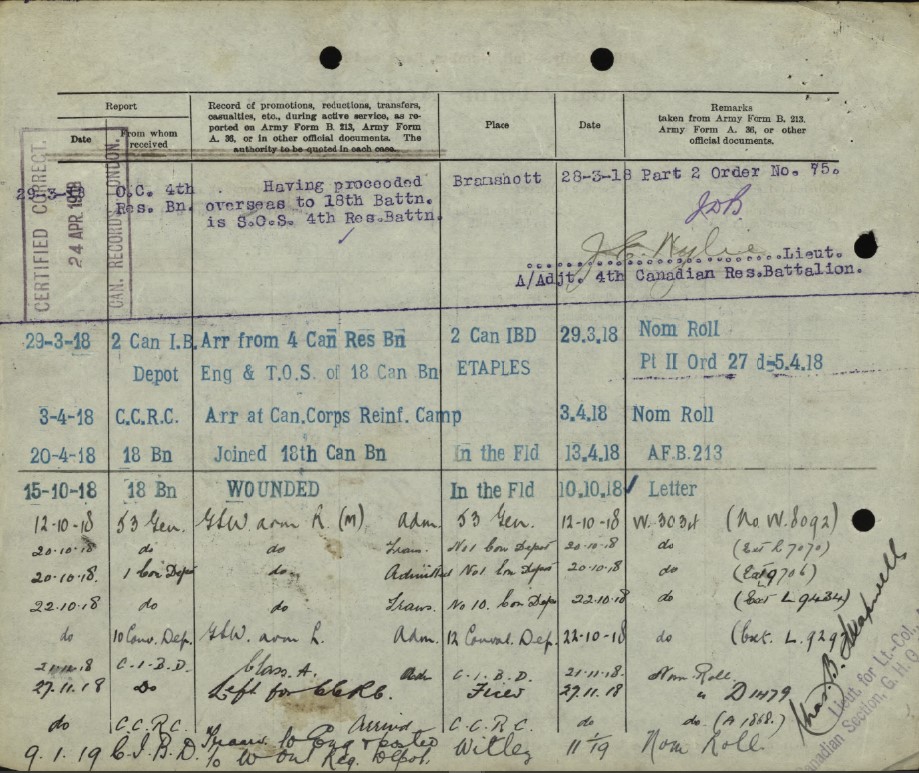 Report
Record of promotions, reductions, transfers, casualties, etc., during active service, as reported on Army Form B. 213, Army Form A. 36, or in other official documents. The authority to be quoted in each case.
Place
Date
Remarks
taken from Army Form B. 213, Army Form A. 36, or other official documents.
Date
From whom received
CERTIFIED CORRECT.
24 APR 1918
CAN. RECORDS, LONDON.
29-3-18 O.C. 4th Having proceeded Bramshott 28-3-18 Part 2 Order No. 75.
Res. Bn. overseas to 18th Battn.
is S.O.S. 4th Res.Battn.
Wylie Lieut.
A/Adjt. 4th Canadian Res.Battalion.
29-3-18 2 Can I.B. Arr from 4 Can Res Bn 2 Can IBD 29.3.18 Nom Roll
Depot Eng & T.O.S. of 18 Can Bn ETAPLES Pt II Ord 27 d-5.4.18
3-4-18 C.C.R.C. Arr at Can.Corps Reinf. Camp 3.4.18 Nom Roll
20-4-18 18 Bn Joined 18th Can Bn In the Fld 13.4.18 A.F.B.213
15-10-18 18 Bn WOUNDED In the Fld 10.10.18 Letter
12-10-18 53 Gen. GSW arm R. (M) Adm. 53 Gen. 12-10-18 W. 3034 (No. W.8092)
20-10-18 do do Trans. No 1 Con Depot 20-10-18 do
20-10-18. 1 Con Depot do Admitted No 1 Con Depot 20-10-18 do
22.10.18 do do Trans. No 10. Con Depot 22.10.18 do (Ext L 9434)
do 10 Conv. Dep. GSW. arm R. Adm. 12 Conval. Dep. 22-10-18 do (Ext. L.929
21-11-18 C-I-B.D. Class. A. Ad C-I-B-D. 21-11-18 Nom Roll
27.11.18 Do Left for CCRC. Field 27.11.18 " D 1479
do C.C.R.C. Arrived C.C.R.C. do do (A 1868.)
9.1.19 C.I.B.D. to Witley 11 1/19 Nom Roll
Lieut for Lt-Col.
Canadian Section, G.H.Q